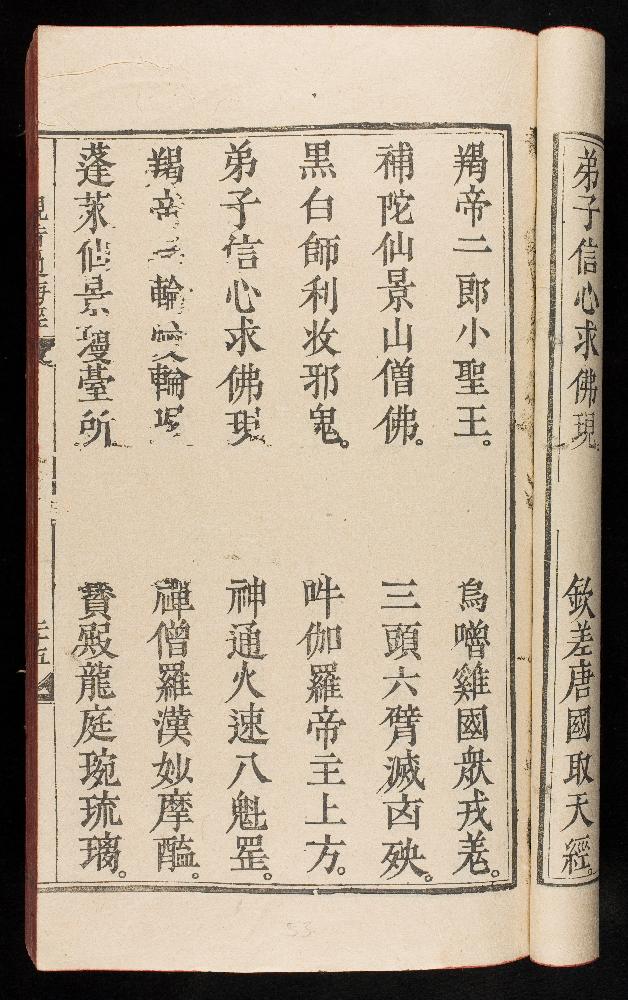 弟子信心求佛現 欽差唐國取天經。
羯帝二郎小聖王。 烏噌雞國衆戎羗。
補陀仙景山僧佛。 三頭六臂滅凶殃。
黑白師利收邪鬼。 吽伽羅帝主上方。
弟子信心求佛現 神通火速八魁罡。
羯帝 輪 輪 禪僧羅漢妙摩醯。
蓬萊仙景 臺所 寳殿龍庭琬琉璃。
二十五
53